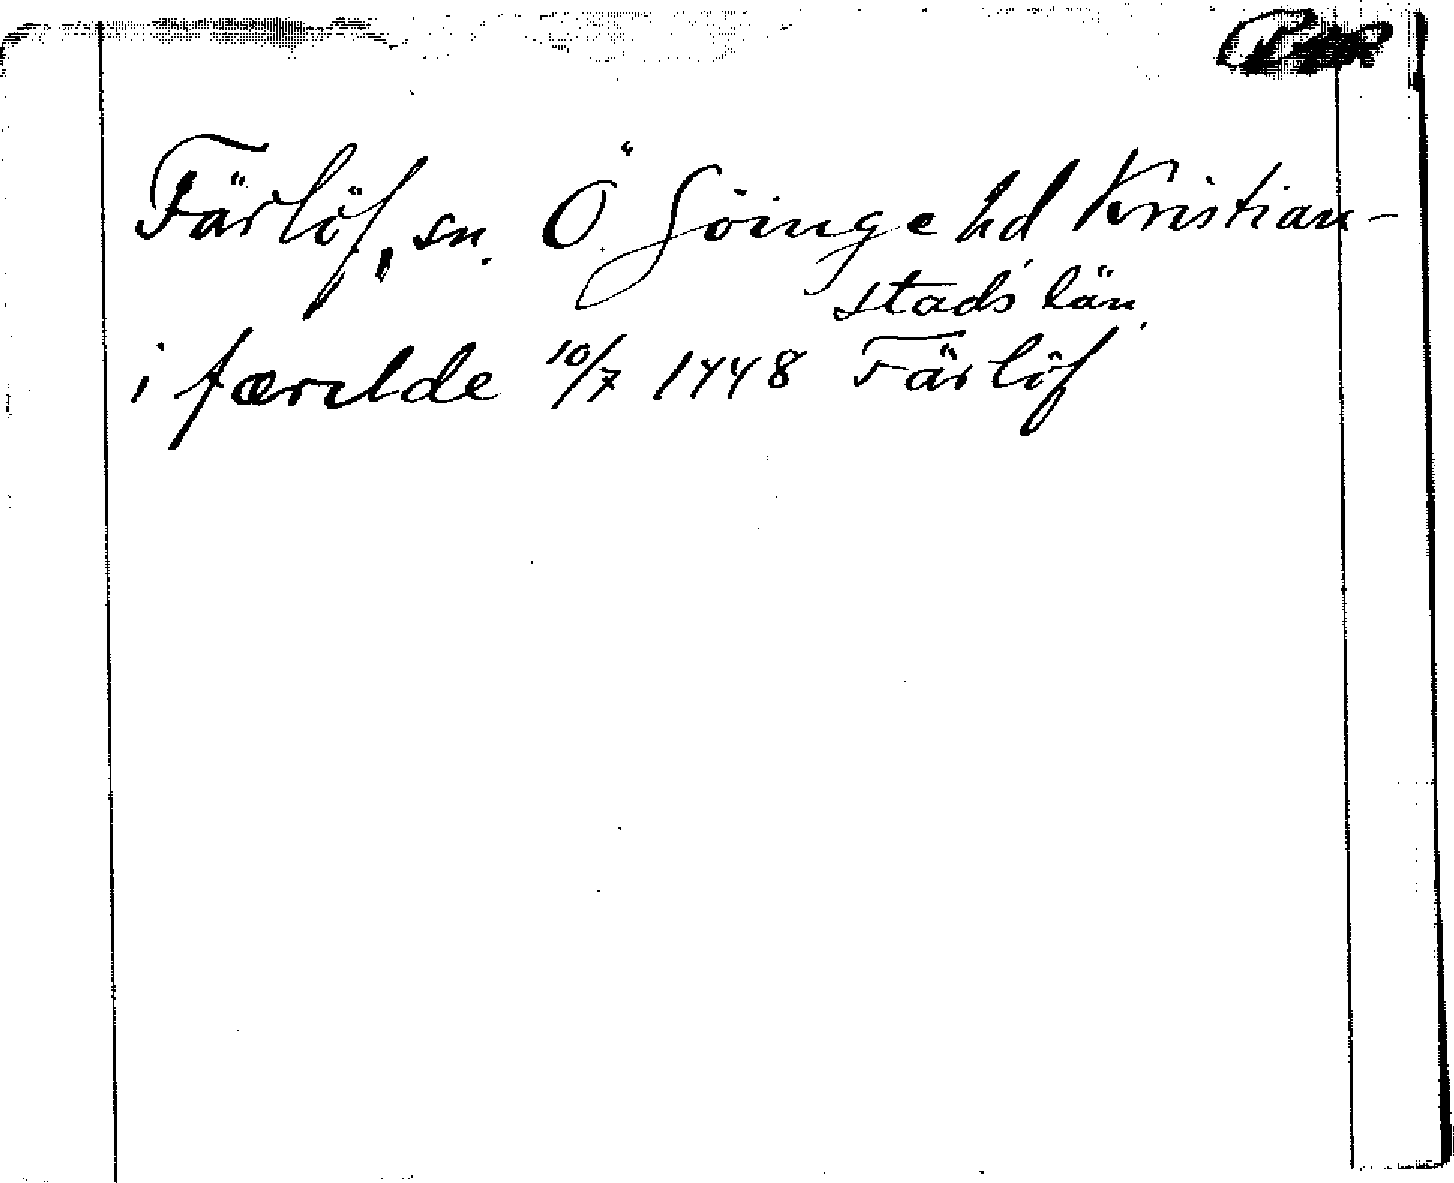 Färlöf, sn. Ö Göinge hd Kristian-
stads län
i færelde 10/7 1448 Färlöf